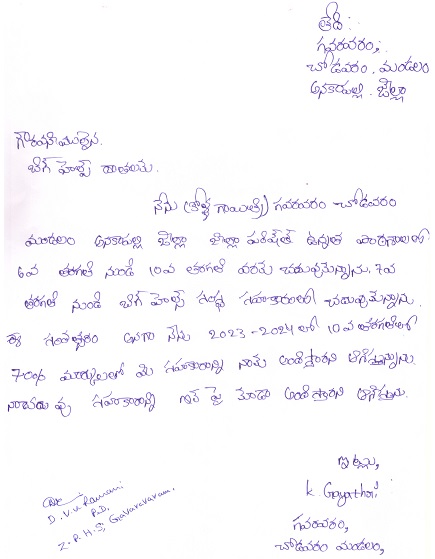 తేది:
గవరవరం,
చోడవరం. మండలం
అనకాపల్లి. జిల్లా
గౌరవనియులైన.
బిగ్ హెల్ప్ దాతలకు.
నేను (కోళ్ళ గాయిత్రి) గవరవరం - చోడవరం
మండలం అనకాపల్లి జిల్లా జిల్లా పరిషత్ ఉన్నత పాఠశాలలో
6వ తరగతి నుండి 10వ తరగతి వరకు చదువుకున్నాను. 7వ
తరగతి నుండి బిగ్ హెల్ప్ సంస్థ సహకారంతో చదువుకున్నాను.
ఈ సంవత్సరం అనగా నేను 2023-2024 లో 10వ తరగతిలో
మార్కులతో మీ సహకారాన్ని నాకు అందిస్తారని ఆశిస్తున్నాను.
సహకారాన్ని ఇక పై కూడా అందిస్తారని ఆశిస్తున్నాను.
ఇట్లు,
K. Gayathri,
గవరవరం,
చోడవరం మండలం,
D.V.V. Ramani
P.D.
Z.P.H.S, Gavaravaram.